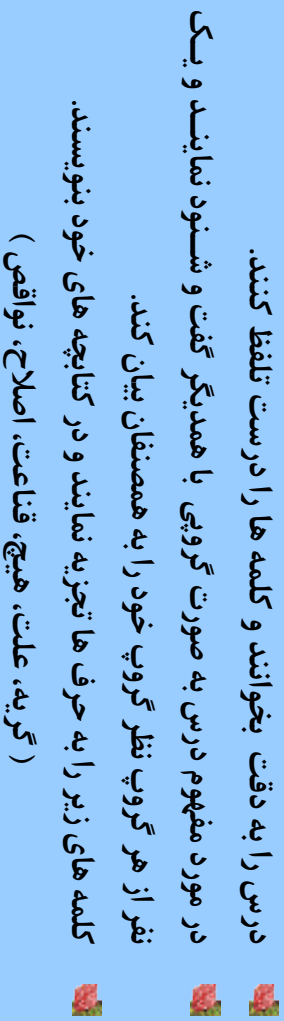 درس را به دقت بخوانند و کلمه ها را درست تلفظ کنند.
در مورد مفهوم درس به صورت گروپی با همدیگر گفت و شـنود نماینـد و یـک
نفر از هر گروپ نظر گروپ خود را به همصنفان بیان کند.
کلمه های زیر را به حرف ها تجزیه نمایند و در کتابچه های خود بنویسند.
( گریه، علت، هیچ، قناعت، اصلاح، نواقص )